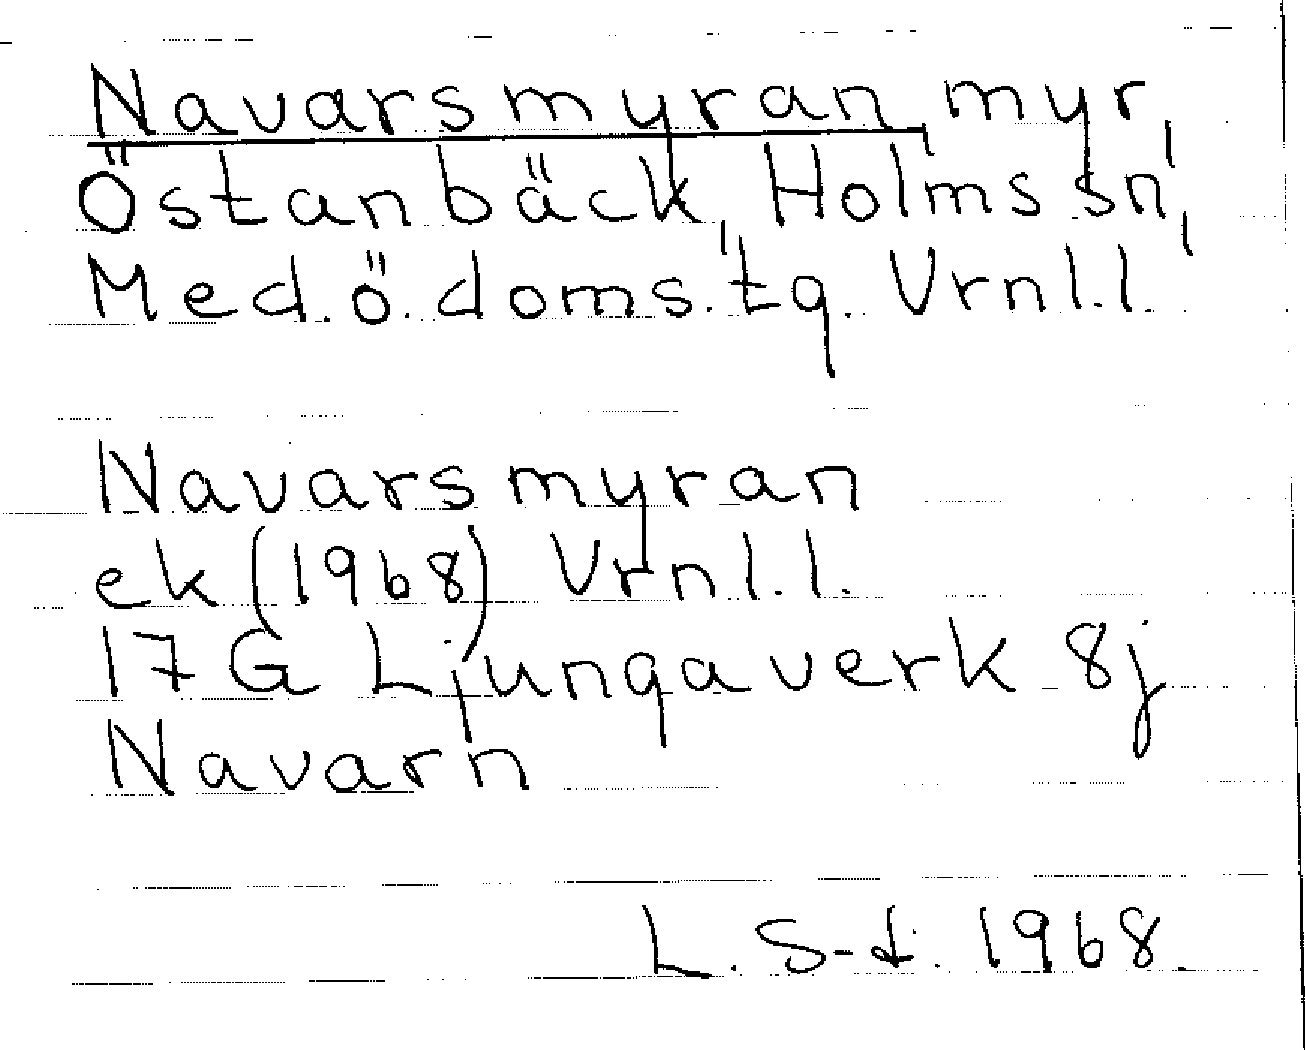 Navarsmyran, myr,
Östanbäck, Holms sn,
Med.ö.doms.tg. Vrnl.l.
Navarsmyran
ek (1968) Vrnl.l.
17 G Ljungaverk 8j
Navarn
L. S-t. 1968.